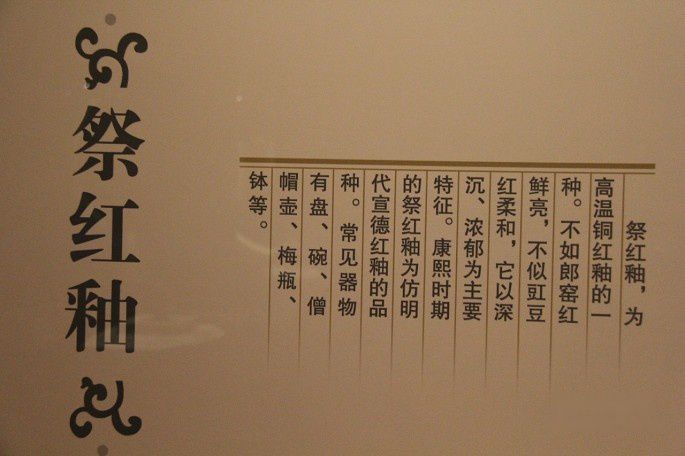 祭红釉
祭红釉，为
高温铜红釉的一
种。不如郎窑红
鲜亮，不似豇豆
红柔和，它以深
沉、浓郁为主要
特征。康熙时期
的祭红釉为仿明
代宣德红釉的品
种。常见器物
有盘、碗、僧
帽壶、梅瓶、
钵等。